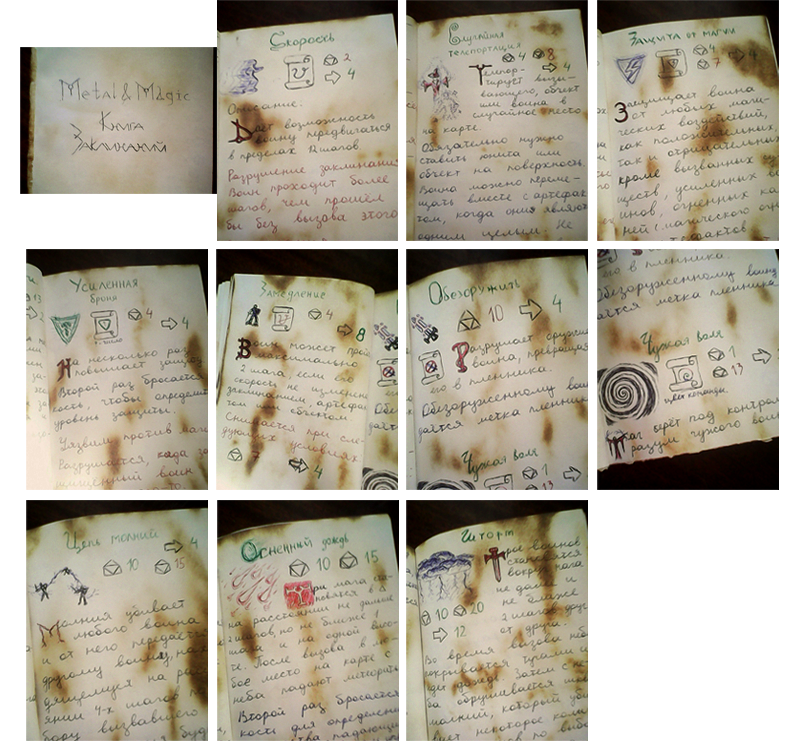 Metal & Magic
Книга
Заклинаний
Скорость
2
4
Описание.
Дает возможность
воину передвигаться
в пределах 12 шагов.
Разрушение заклинани
Воин проходит более
шагов, чем прошёл
бы без вызова этого
Случайная
телепортация
4 8
4
Телепор-
тирует вызы-
вающего, объект
или воина в
случайное место
на карте.
Обязательно нужно
ставить юнита или
объект на поверхность.
Воина можно переме-
щать вместе с артефак
том, когда они являют
одним целым. Не
Защита от магии
4
7
4
Защищает воина
от любых маги-
ческих воздействий,
как положительных,
так и отрицательных,
кроме вызванных су
ществ, усиленных во
инов, огненных ка
ней с магического огн
Усиленная
броня
4
4
На несколько раз
повышает защиту
Второй раз бросается
кость, чтобы определит
уровень защиты.
Уязвим против маги
Разрушается, когда за
щищенный воин
Замедление
4
8
Воин может прой
максимально
2 шага, если его
скорость не изменена
заклинанием, артефак
том или объектом
Снимается при сле-
дующих условиях
7
4
Обезоружить
10
4
Разрушает оружие
воина, превращая
его в пленника.
Обезоруженному воин
даётся метка пленника
Чужая воля
1
13
его в пленника.
Обезоруженному воину
даётся метка пленника
Чужая воля
1
13
цвет команды.
Маг берёт под контрол
разум чужого воин
Цепь молний
4
10 15
Молния убивает
любого воина
и от него передаётся
другому воину, нахо
дящемуся на рассто
янии 4-х шагов по
бору вызвавшего
Огненный дождь
10 15
Три мага ста-
новятся в
на расстоянии не дальше
2 шагов, но не ближе 1
шага и на одной высо-
те. После вызова в лю-
бое место на карте с
неба падают метеориты
Второй раз бросается
кость для определени
падающи
Шторм
10 20
12
Трое воинов
становятся
вокруг мага
не далее и
не ближе
2 шагов друг
от друга.
Во время вызова небо
покрывается тучами и
идет дождь. Затем с не
ба обрушивается шквал
молний, который уби
вает некоторое коли